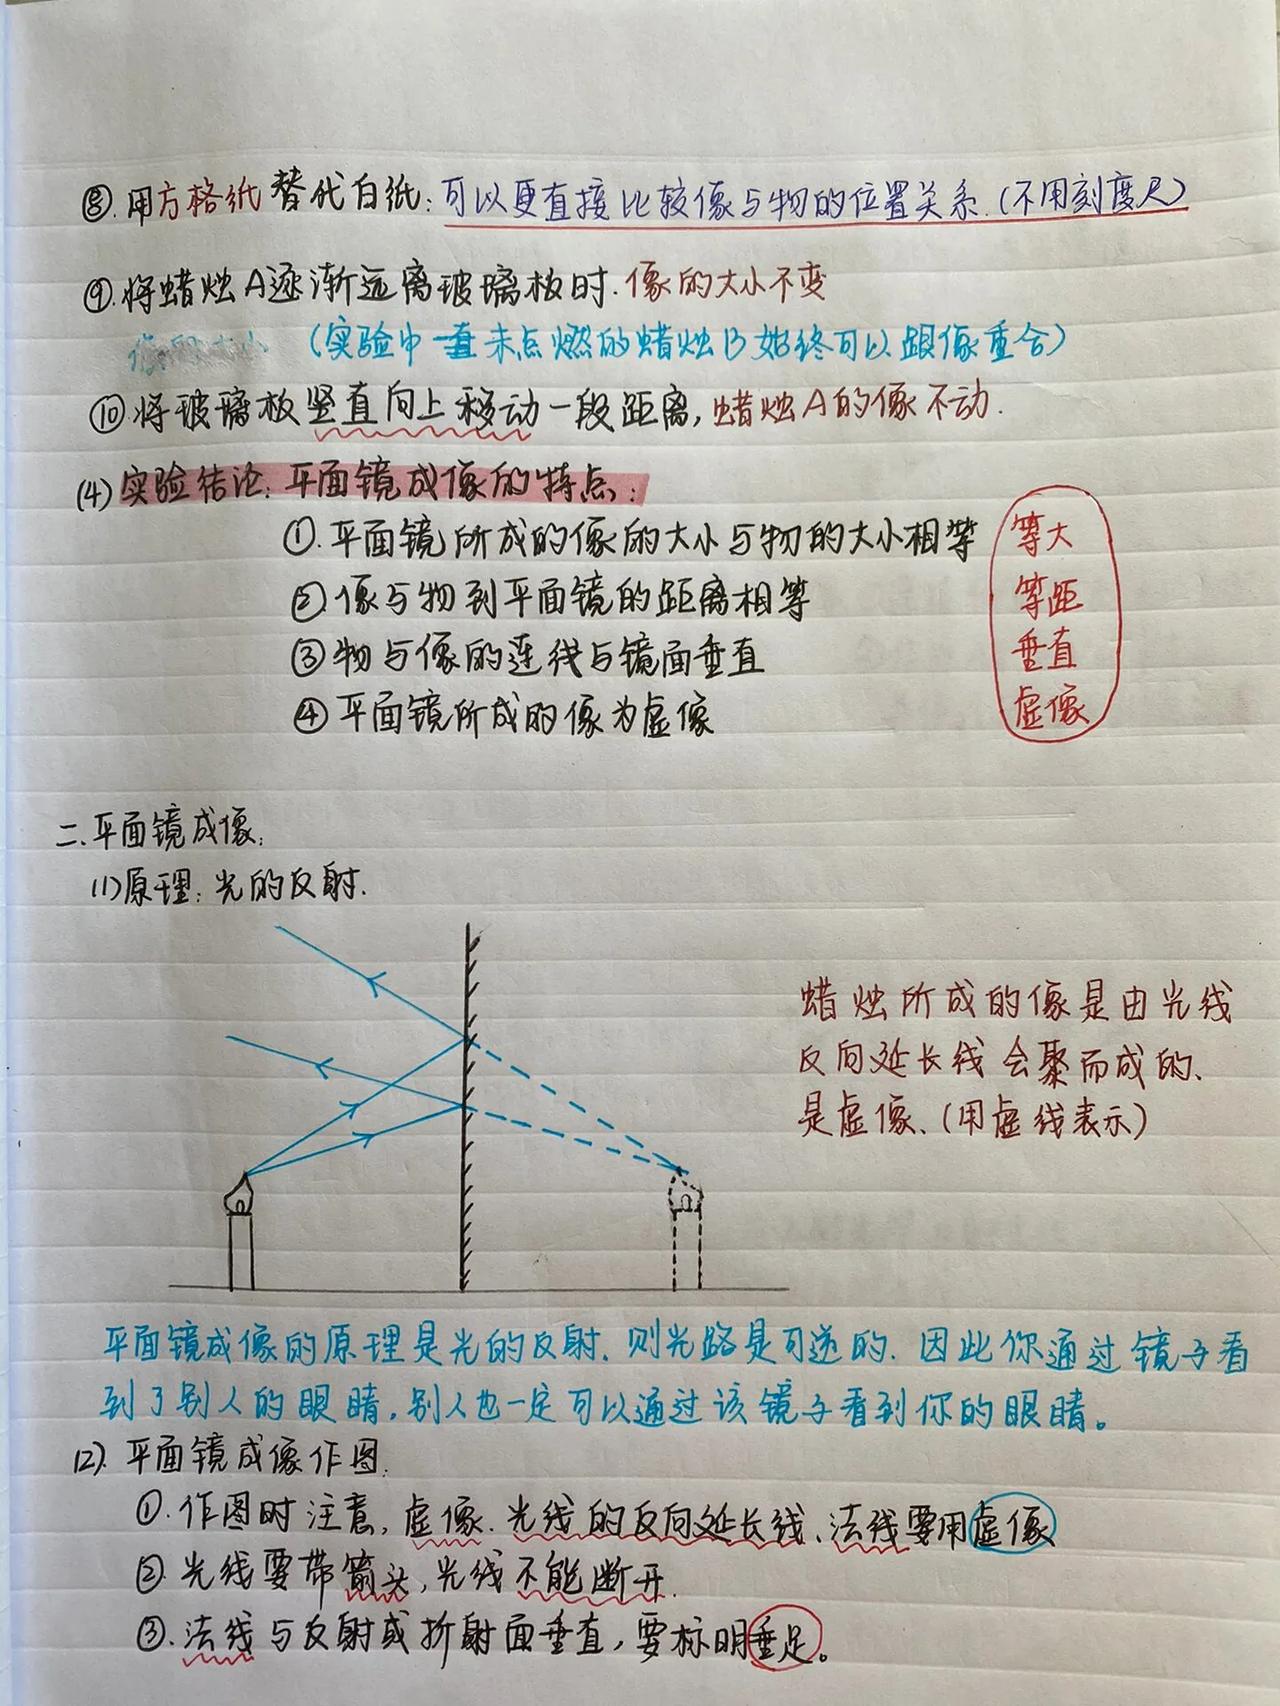 ⑧.用方格纸替代白纸:可以更直接比较像与物的位置关系.(不用刻度尺)
⑨.将蜡烛A逐渐远离玻璃板时.像的大小不变
(实验中一直未点燃的蜡烛B始终可以跟像重合)
⑩将玻璃板竖直向上移动一段距离,蜡烛A的像不动.
(4)实验结论:平面镜成像的特点:
①.平面镜所成的像的大小与物的大小相等
等大
②.像与物到平面镜的距离相等
等距
③物与像的连线与镜面垂直
垂直
④平面镜所成的像为虚像
虚像
二.平面镜成像:
(1)原理:光的反射.
蜡烛所成的像是由光线
反向延长线会聚而成的、
是虚像、(用虚线表示)
平面镜成像的原理是光的反射.则光路是可逆的.因此你通过镜子看
到了别人的眼睛,别人也一定可以通过该镜子看到你的眼睛。
(2).平面镜成像作图:
①.作图时注意,虚像.光线的反向延长线、法线要用虚像
②.光线要带箭头,光线不能断开.
③.法线与反射或折射面垂直,要标明垂足。